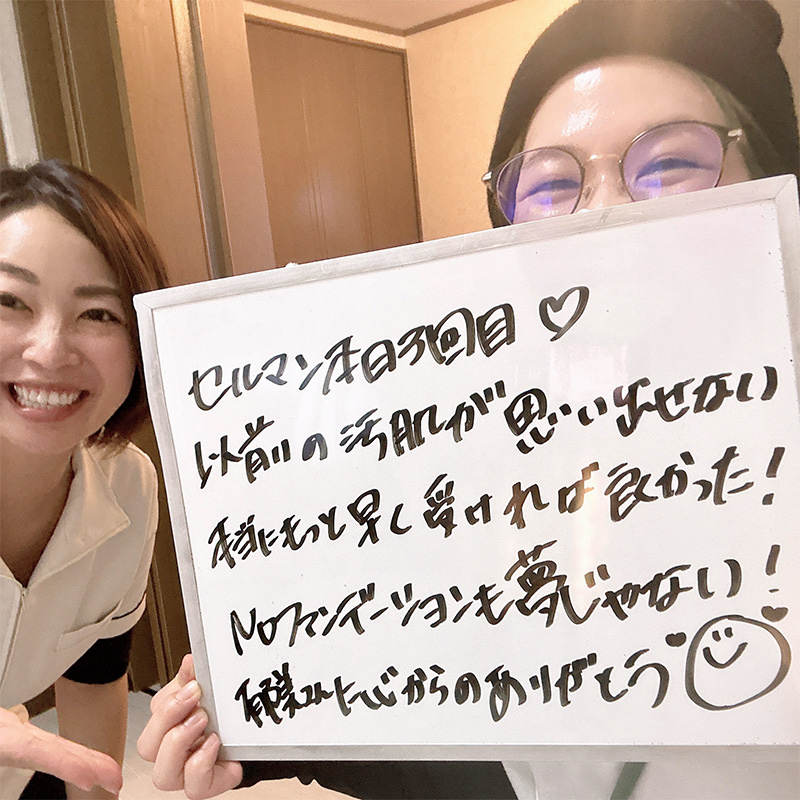 セルマン本日3回目♡
以前の汚肌が思い出せない
本当にもっと早く受ければ良かった!
Noファンデーションも夢じゃない!
さんに心からのありがとう